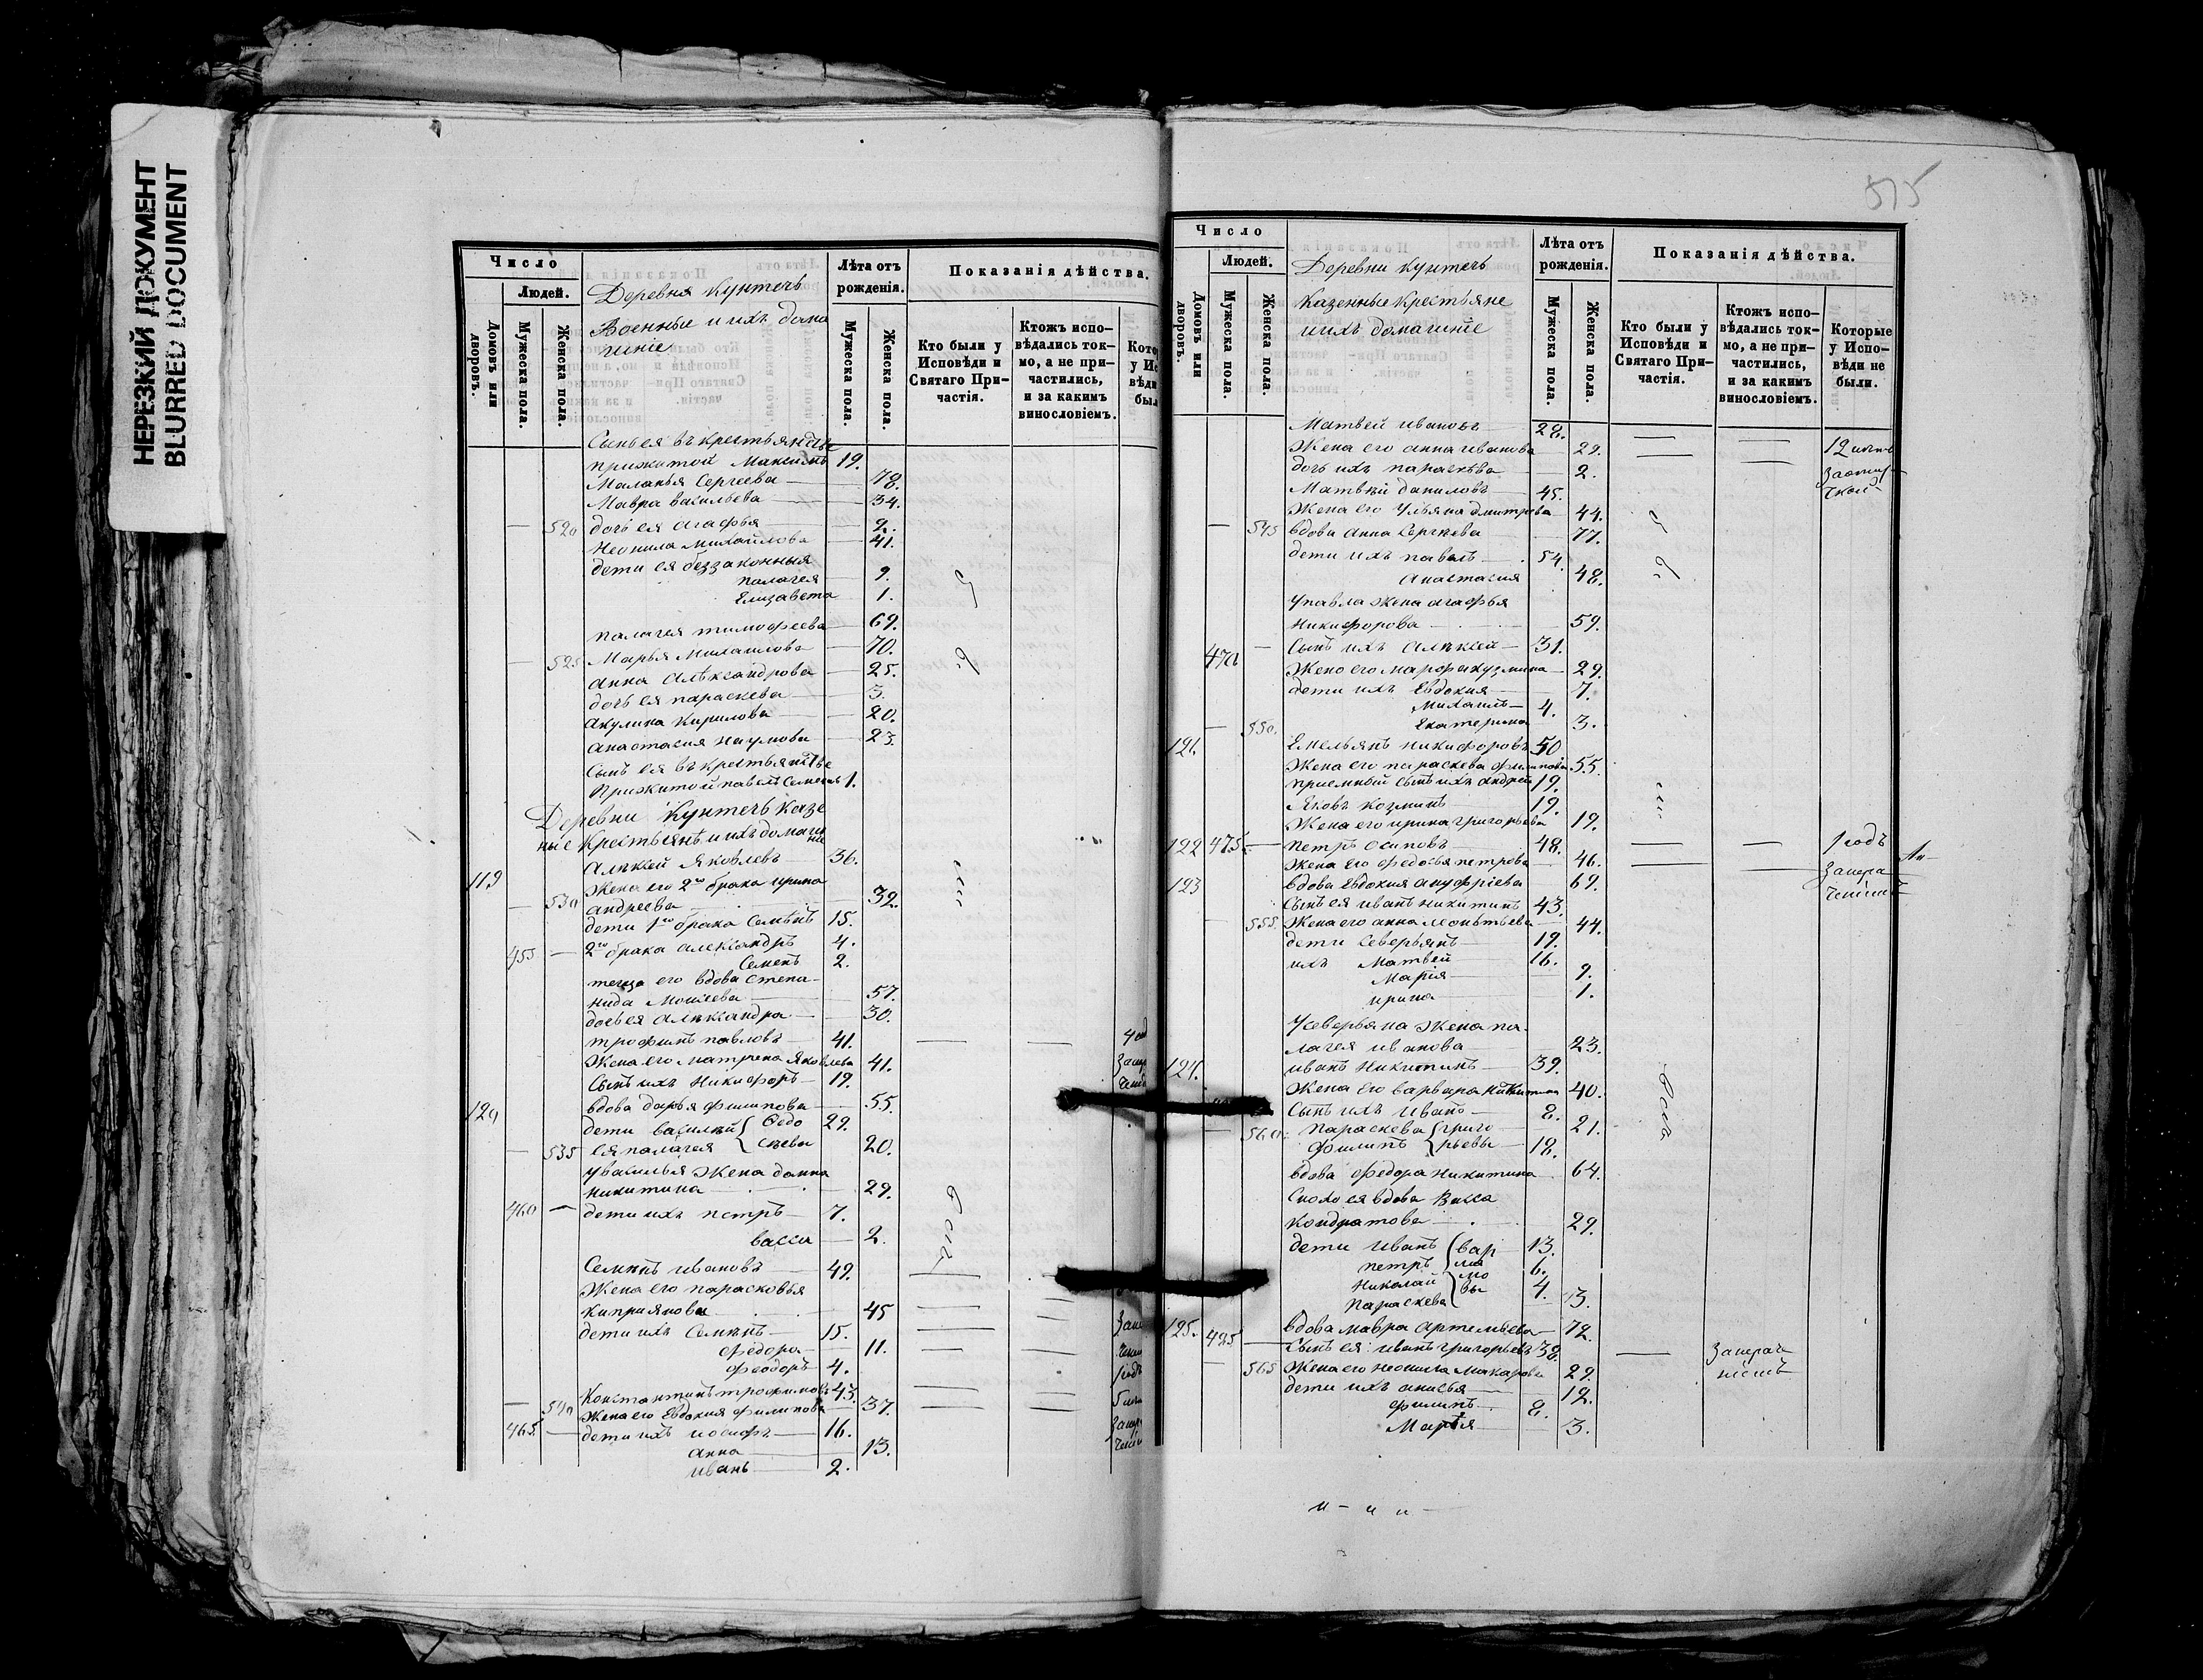 НЕРЕЗКИЙ ДОКУМЕНТ
BLURRED DOCUMENT
Число
Людей.
Домовъ или дворовъ.
Мужеска пола.
Женска пола.
Деревня Кунтечь
Военные и ихъ дома
шніе
Лѣта отъ рожденія.
Мужеска пола.
Женска пола.
Показанія дѣйства.
Кто были у Исповѣди и Святаго Причастія.
Ктожъ исповѣдались токмо, а не причастились, и за какимъ винословіемъ.
Сынъ ея въ крестьянствѣ
прижитой Максимъ 19.
Маланья Сергеева 78.
Мавра Васильева 34.
520 дочь ея Агафья 2.
Неонила Михайлова 41.
дети ея беззаконныя
Палагея 9.
Елизавета 1.
Палагея Тимофеева 69.
525 Марья Михаилова 70.
Анна Алѣксандрова 25.
дочь ея Параскева 3.
Акулина Кирилова 20.
Анастасия Наумова 23.
Сынъ ея въ крестьянствѣ
Прижитой Павелъ Семеновъ 1.
Деревни Кунтечь казе
нные Крестьянѣ и ихъ домашніе
119 Алѣксѣй Яковлевъ 36.
Жена его 2го брака Ирина
530 Андреева 32.
дети 1го брака Семѣнъ 15.
455 2го брака Александръ 4.
Семенъ 2.
теща его вдова Степа-
нида Моисеева 57.
дочь ея Алѣксандра 30.
Трофимъ Павловъ 41.
Жена его Матрена Яковлева 41.
Сынъ ихъ Никифоръ 19.
120 вдова Дарья Филипова 55.
дети Василий Федо 29.
535 ея Палагея сѣевы 20.
У Василья Жена Домна
Никитина 29.
460 дети ихъ Петръ 7.
Васса 2.
Семѣнъ Ивановъ 49.
Жена его Парасковья
Киприянова 45
дети ихъ Семѣнъ 15.
Федора 11.
Феодоръ 4.
Константинъ Трофимовъ 43.
540 Жена его Евдокия Филипова 37.
465. дети ихъ Иосифъ 16.
Анна 13.
Иванъ 2.
515
Число
Людей.
Домовъ или дворовъ.
Мужеска пола.
Женска пола.
Деревни Кунтечь
Казенные Крестьяне
и ихъ домашніе
Лѣта отъ рожденія.
Мужеска пола.
Женска пола.
Показанія дѣйства.
Кто были у Исповѣди и Святаго Причастія.
Ктожъ исповѣдались токмо, а не причастились, и за какимъ винословіемъ.
Которые у Исповѣди не были.
Матвей Ивановъ 28.
Жена его Анна Иванова 29. 12
дочь ихъ Параскѣва 2.
Матвѣй Даниловъ 45.
Жена его Ульяна Дмитрева 44.
545 вдова Анна Сергѣева 77.
дети ихъ Павелъ 54.
Анастасия 48.
У Павла Жена Агафья
Никифорова 59.
470 Сынъ ихъ Алѣксей 31.
Жена его Марфа Кузмина 29.
дети ихъ Евдокия 7.
Михаилъ 4.
550. Екатерина 3.
121. Емельянъ Никифоровъ 50
Жена его Параскева Филипова 55.
приемный сынъ ихъ Андрей 19.
Яковъ Козминъ 19.
Жена его Ирина Григорьева 19.
122 475. Петръ Осиповъ 48. 1 годъ
Жена его Федосья Петрова 46.
123 вдова Евдокия Ануфріева 69.
Сынъ ея Иванъ Никитинъ 43.
555. Жена его Анна Леонтьева 44.
дети Северьянъ 19.
ихъ Матвей 16.
Марія 9.
Ирина 1.
У Северьяна Жена Па-
лагея Иванова 23.
124. Иванъ Никитинъ 39.
Жена его Варвара Никитина 40.
Сынъ ихъ Иванъ 8.
560. Параскева Григо 21.
Филипъ рьевы 18.
вдова Федора Никитина 64.
Сноха ея вдова Васса
Кондратова 29.
дети Иванъ Вар 13.
Петръ ла 6.
Николай мо 4.
Параскева вы 13.
125. 425 вдова Мавра Артемьева 72.
Сынъ ея Иванъ Григорьевъ 38.
565 Жена его Неонила Макарова 29.
дети ихъ Анисья 12.
Филипъ 8.
Марья 3.